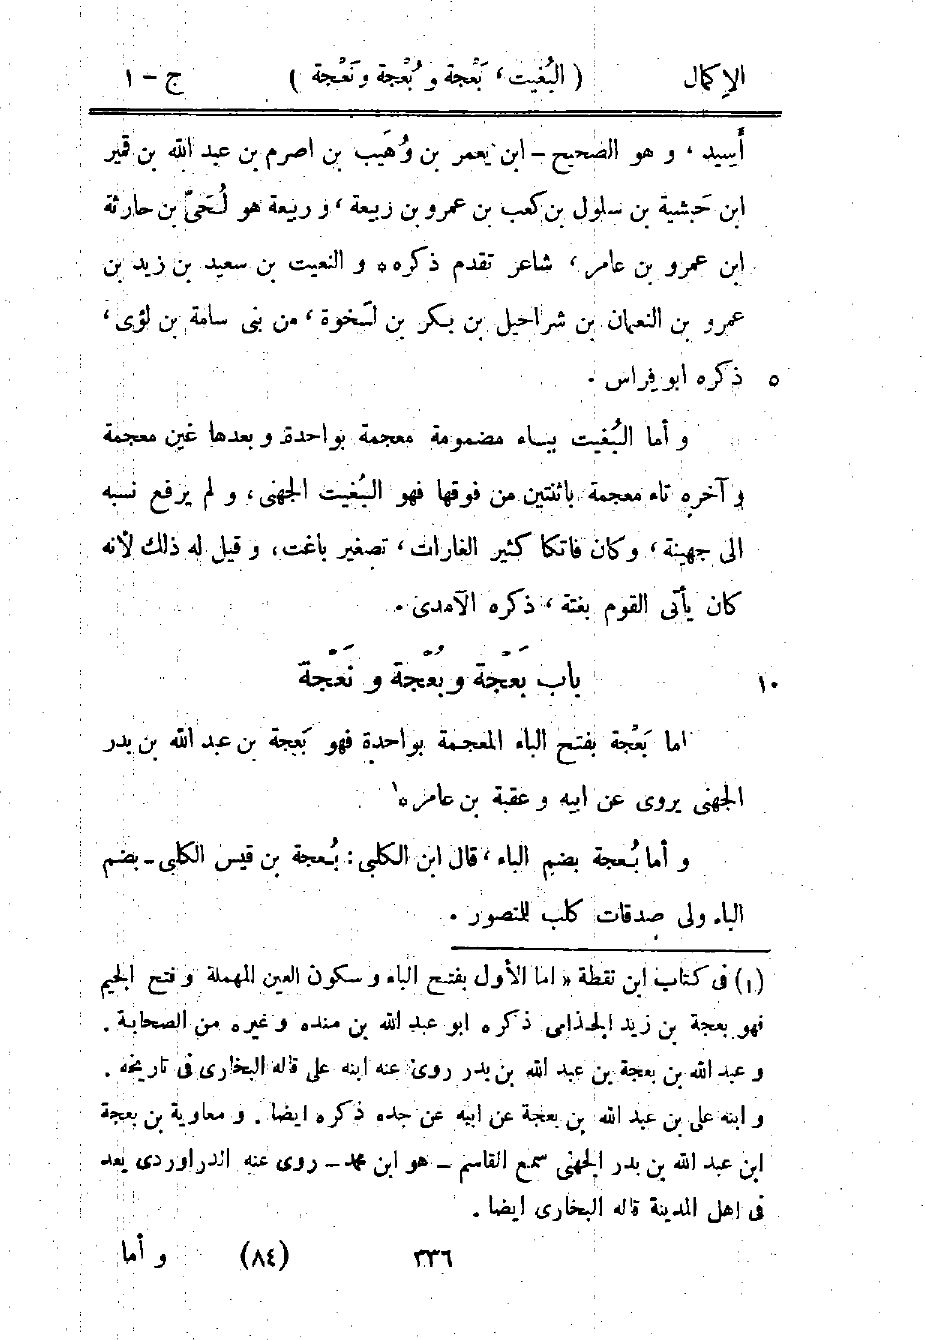 الإكمال ( البُغيت، بَعْجة و بُعْجة و نَعْجة ) ج – ١
أَسِيد، و هو الصحيح – ابن يعمر بن وُهَيب بن اصرم بن عبد الله بن قمير
ابن حَبشية بن سلول بن كعب بن عمرو بن ربيعة، و ربيعة هو لُحَيّ بن حارثة
ابن عمرو بن عامر، شاعر تقدم ذكره ٥ و النعيت بن سعيد بن زيد بن
عمرو بن النعمان بن شراحيل بن بكر بن لَخوة، من بنى سامة بن لؤى،
ذكره ابو فِراس . ٥
و أما البُغيت بباء مضمومة معجمة بواحدة و بعدها غين معجمة
و آخره تاء معجمة باثنتين من فوقها فهو البُغيت الجهنى، و لم يرفع نسبه
الى جهينة، و كان فاتكا كثير الغارات، تصغير باغت، و قيل له ذلك لأنه
كان يأتى القوم بغتة، ذكره الآمدى .
باب بَعْجَة و بُعْجَة و نَعْجَة ١٠
اما بَعْجة بفتح الباء المعجمة بواحدة فهو بَعجة بن عبد الله بن بدر
الجهنى يروى عن ابيه و عقبة بن عامر ٥ ١
و أما بُعجة بضم الباء، قال ابن الكلبى: بُعجة بن قيس الكلبى – بضم
الباء ولى صدقات كلب للمنصور .
(١) فى كتاب ابن نقطة « اما الأول بفتح الباء و سكون العين المهملة و فتح الجيم
فهو بعجة بن زيد الجذامى ذكره ابو عبد الله بن منده و غيره من الصحابة .
و عبد الله بن بعجة بن عبد الله بن بدر روى عنه ابنه على قاله البخارى فى تاريخه .
و ابنه على بن عبد الله بن بعجة عن ابيه عن جده ذكره ايضا . و معاوية بن بعجة
ابن عبد الله بن بدر الجهنى سمع القاسم – هو ابن محمد – روى عنه الدراوردى يعد
فى اهل المدينة قاله البخارى ايضا .
٣٣٦ (٨٤) و أما